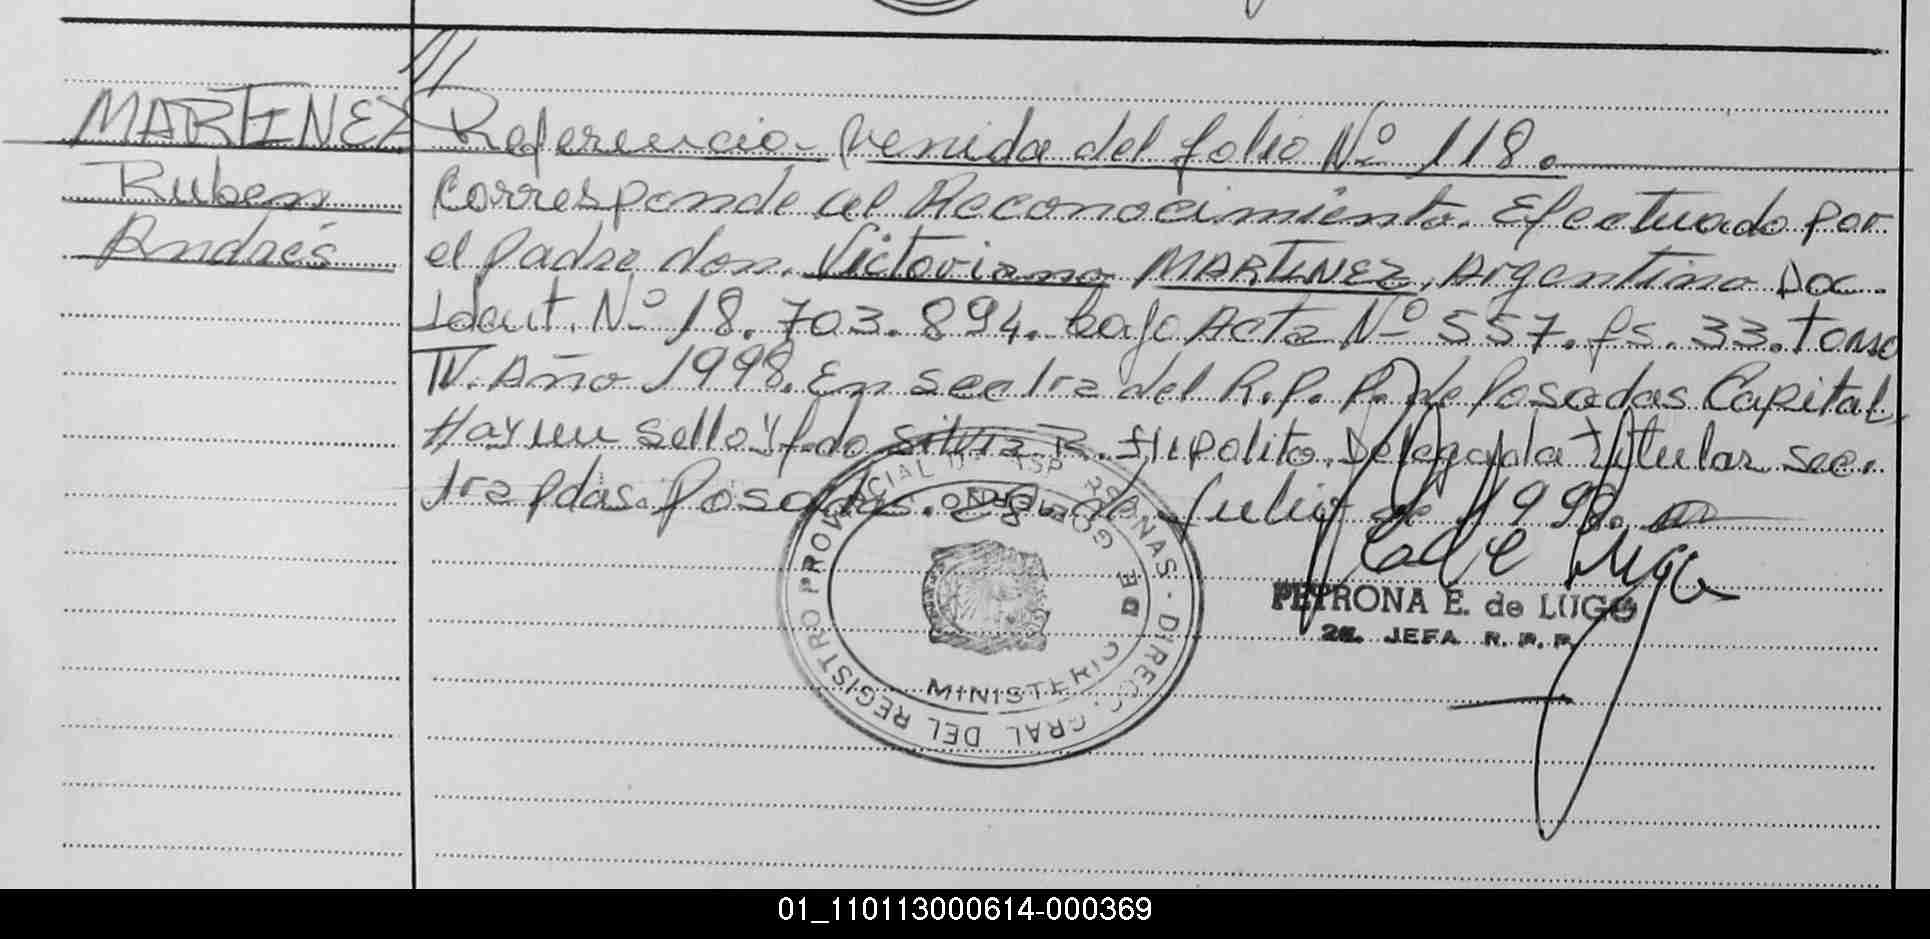 MARTINEZ
Ruben
Andrés
Referencia venida del folio Nº 118.
Corresponde al Reconocimiento. Efectuado por
el padre don. Victoriano MARTINEZ, Argentino Doc.
Ident. Nº 18.703.894. bajo Acta Nº 557. fs. 33. Tomo
IV. Año 1998. En sec 1ra del R.P.P. de Posadas Capital,
Hay un sello y fdo Silvia R. Hipolito. Delegada titular sec.
1ra pdas. Posadas. Julio de 1998.
REGISTRO PROVINCIAL DE PERSONAS - DIRECC. GRAL DEL
MINISTERIO DE GOBIERNO
PETRONA E. de LUGO
2a. JEFA R. P. P.
01_110113000614-000369